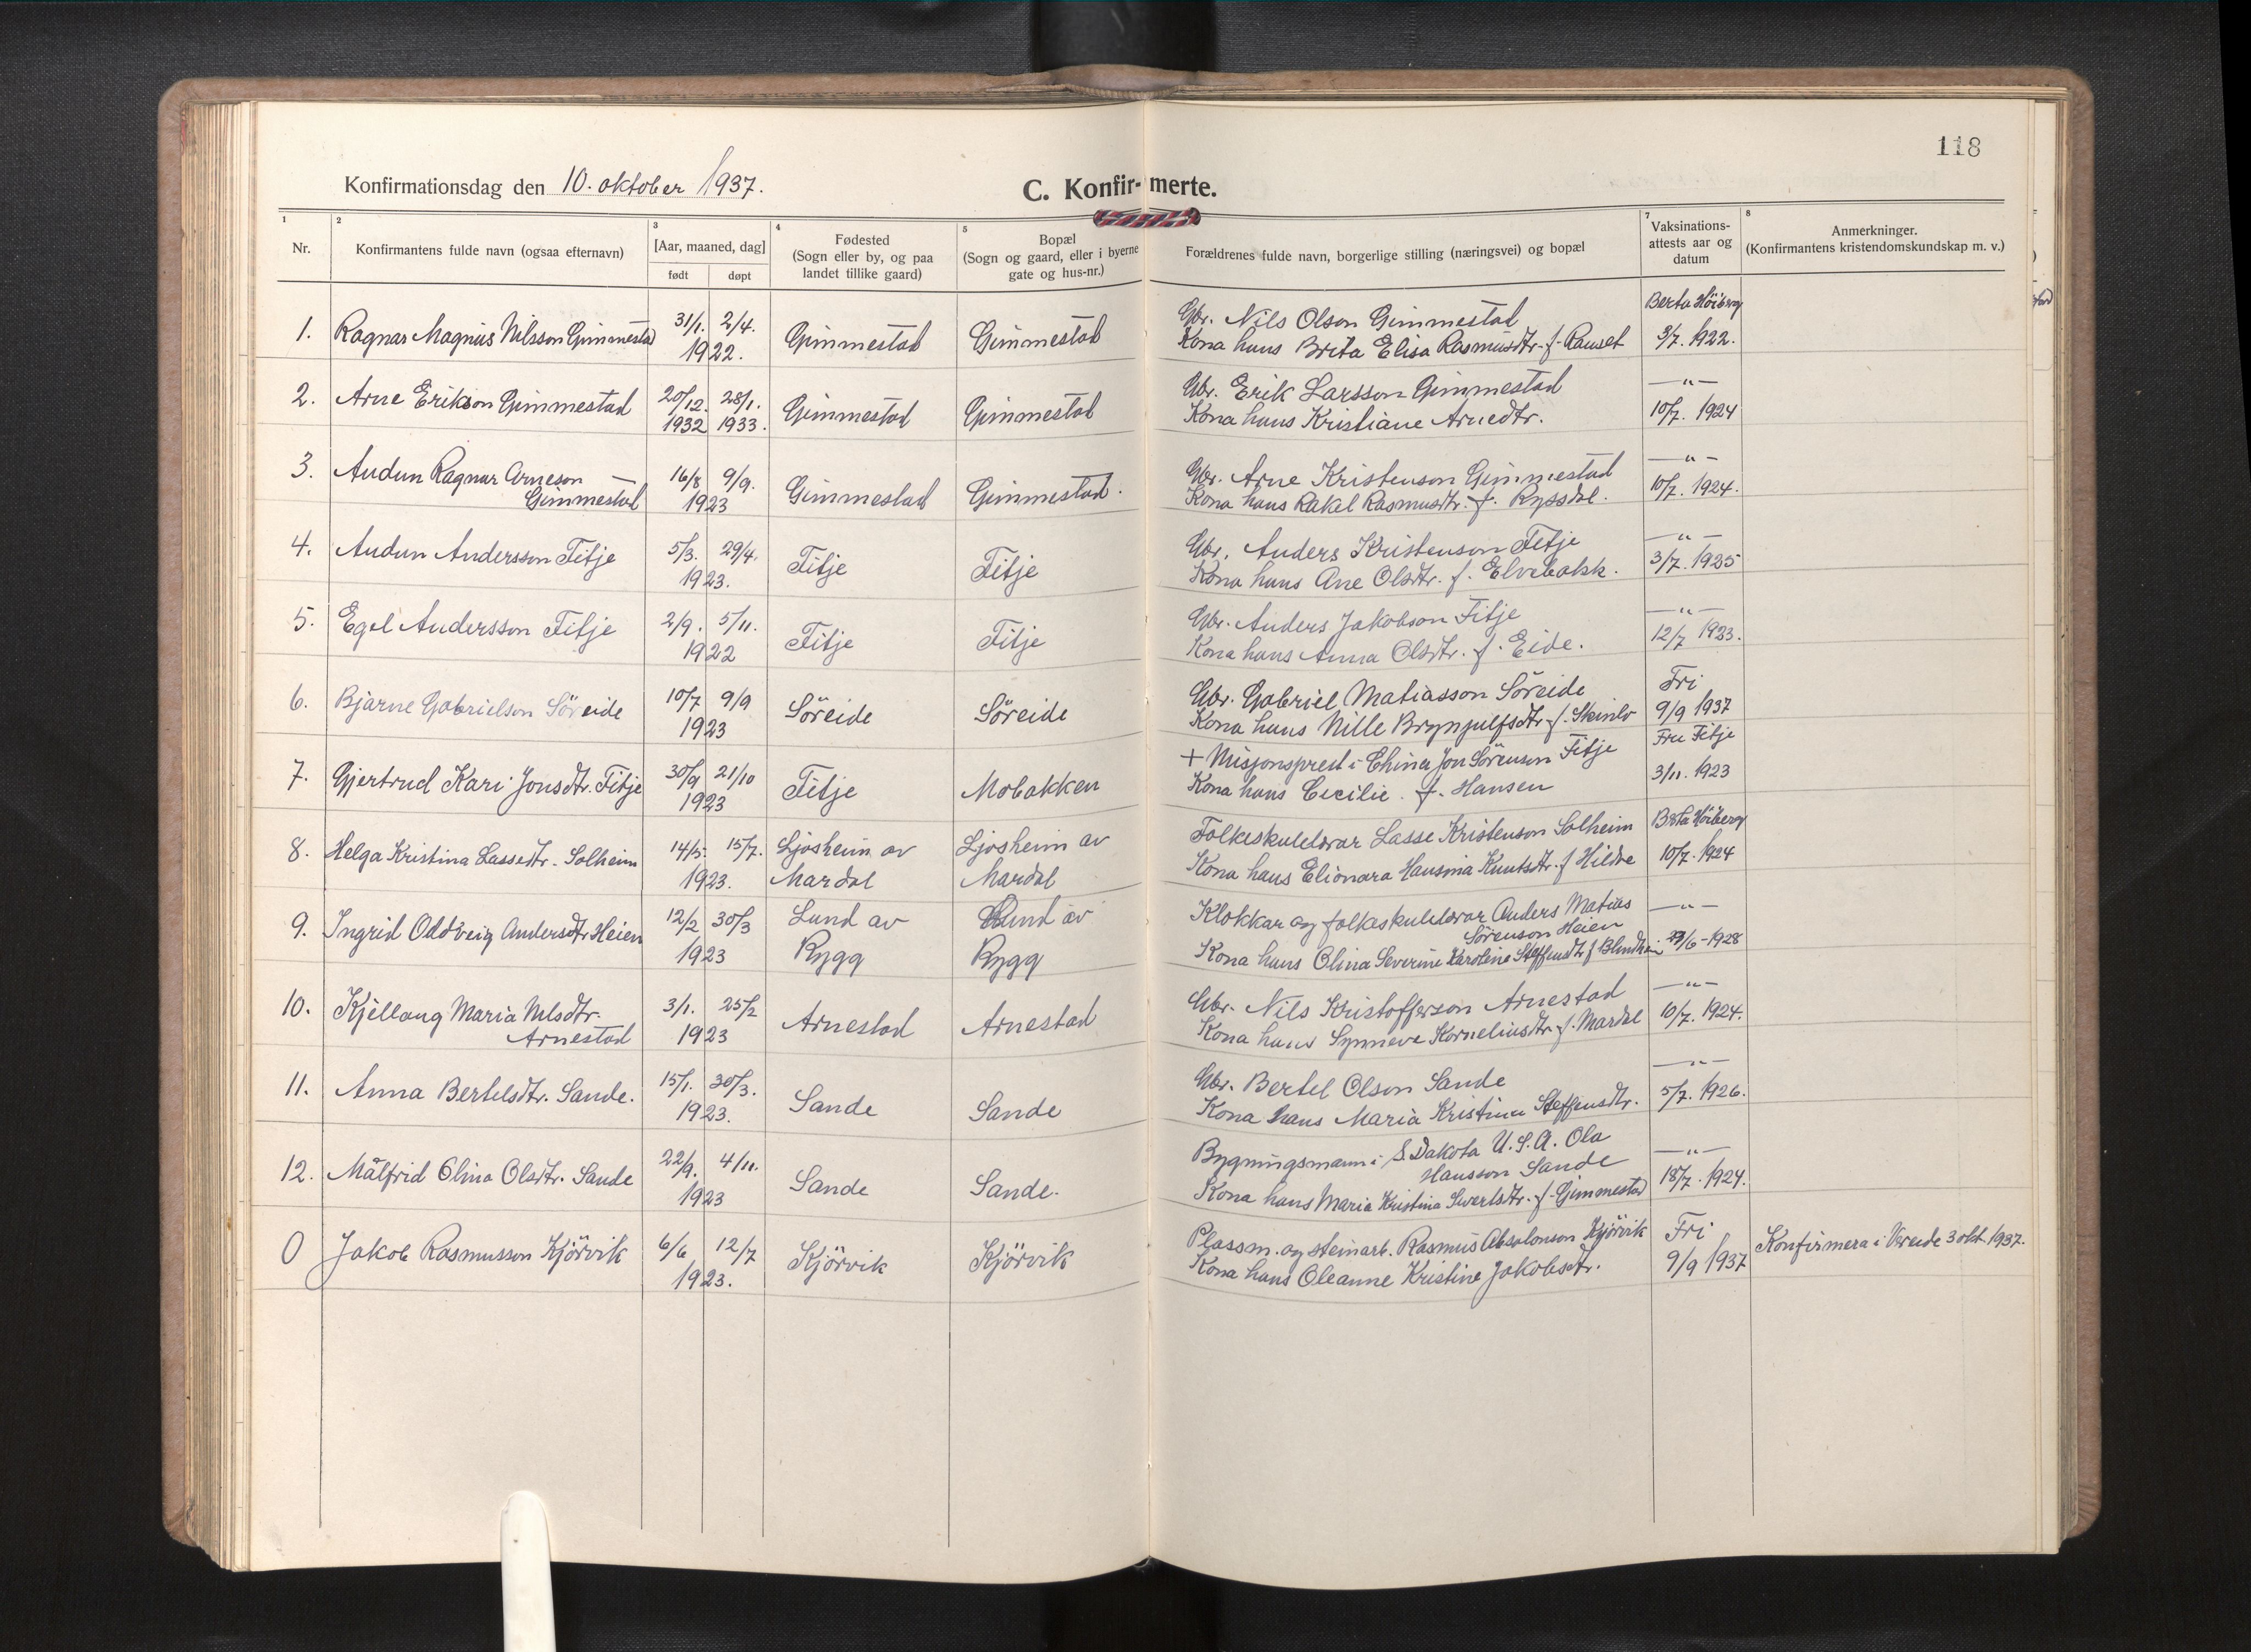 118
Konfirmationsdag den 10. oktober 1937.
C. Konfir-merte.
1 2 3 4 5 7 8
Nr.
Konfirmantens fulde navn (ogsaa efternavn)
[Aar, maaned, dag]
født døpt
Fødested
(Sogn eller by, og paa
landet tillike gaard)
Bopæl
(Sogn og gaard, eller i byerne
gate og hus-nr.)
Forældrenes fulde navn, borgerlige stilling (næringsvei) og bopæl
Vaksinations-
attests aar og
datum
Anmerkninger.
(Konfirmantens kristendomskundskap m. v.)
1. Ragnar Magnus Nilsson Gimmestad 31/1. 2/4. 1922. Gimmestad Gimmestad
Gbr. Nils Olson Gimmestad
Kona hans Brita Elisa Rasmusdtr. f. Ranset
Berta Höiberg
3/7. 1922.
2. Arne Erikson Gimmestad 20/12. 1932 28/1. 1933. Gimmestad Gimmestad
Gbr. Erik Larsson Gimmestad
Kona hans Kristiane Arnedtr.
—"—
10/7. 1924
3. Audun Ragnar Arneson
Gimmestad 16/8 9/9. 1923 Gimmestad Gimmestad.
Gbr. Arne Kristenson Gimmestad
Kona hans Rakel Rasmusdtr. f. Ryssdal.
—"—
10/7. 1924.
4. Audun Andersson Fitje 5/3. 29/4. 1923. Fitje Fitje
Gbr. Anders Kristenson Fitje
Kona hans Ane Olsdtr. f. Elvebakk.
—"—
3/7. 1925
5. Egel Andersson Fitje 2/9. 5/11. 1922 Fitje Fitje
Gbr. Anders Jakobson Fitje
Kona hans Anna Olsdtr. f. Eide.
—"—
12/7 1923.
6. Bjarne Gabrielson Söreide 10/7 9/9 1923 Söreide Söreide
Gbr. Gabriel Matiasson Söreide
Kona hans Nille Brynjulfsdtr. f. Skinlo
Fri
9/9 1937
7. Gjertrud Kari Jonsdtr. Fitje 30/9 21/10 1923 Fitje Mobakken
+ Misjonsprest i China Jon Sörenson Fitje
Kona hans Cecilie f. Hansen
Fru Fitje
3/11. 1923
8. Helga Kristina Lassedtr. Solheim 14/5. 15/7. 1923. Ljosheim av
Mardal Ljosheim av
Mardal
Folkeskulelærar Lasse Kristenson Solheim
Kona hans Elionara Hansina Knutsdtr. f Hildre
Berta Höiberg
10/7. 1924
9. Ingrid Oddveig Andersdtr Heien 12/2 30/3 1923 Lund av
Rygg Lund av
Rygg
Klokkar og folkeskulelærar Anders Matias
Sörenson Heien
Kona hans Olina Severine Karoline Steffensdtr f Blindheim
—"—
23/6 - 1928
10. Kjellaug Maria Nilsdtr.
Arnestad 3/1. 25/2 1923 Arnestad Arnestad
Gbr. Nils Kristofferson Arnestad
Kona hans Synneve Korneliusdtr. f. Mardal
—"—
10/7. 1924.
11. Anna Bertelsdtr. Sande. 15/1. 30/3. 1923. Sande Sande
Gbr. Bertel Olson Sande
Kona hans Maria Kristina Steffensdtr.
—"—
5/7. 1926.
12. Målfrid Olina Olsdtr. Sande 22/9. 4/11. 1923 Sande Sande.
Bygningsmann i S. Dakota U.S.A. Ola
Hansson Sande
Kona hans Maria Kristina Sivertsdtr. f. Gimmestad
—"—
18/7. 1924.
0 Jakob Rasmusson Kjörvik 6/6 12/7 1923. Kjörvik Kjörvik
Plassm. og steinarb. Rasmus Absalonson Kjörvik
Kona hans Oleanne Kristine Jakobsdtr.
Fri
9/9 1937
Konfirmera i Vereide 3 okt. 1937.